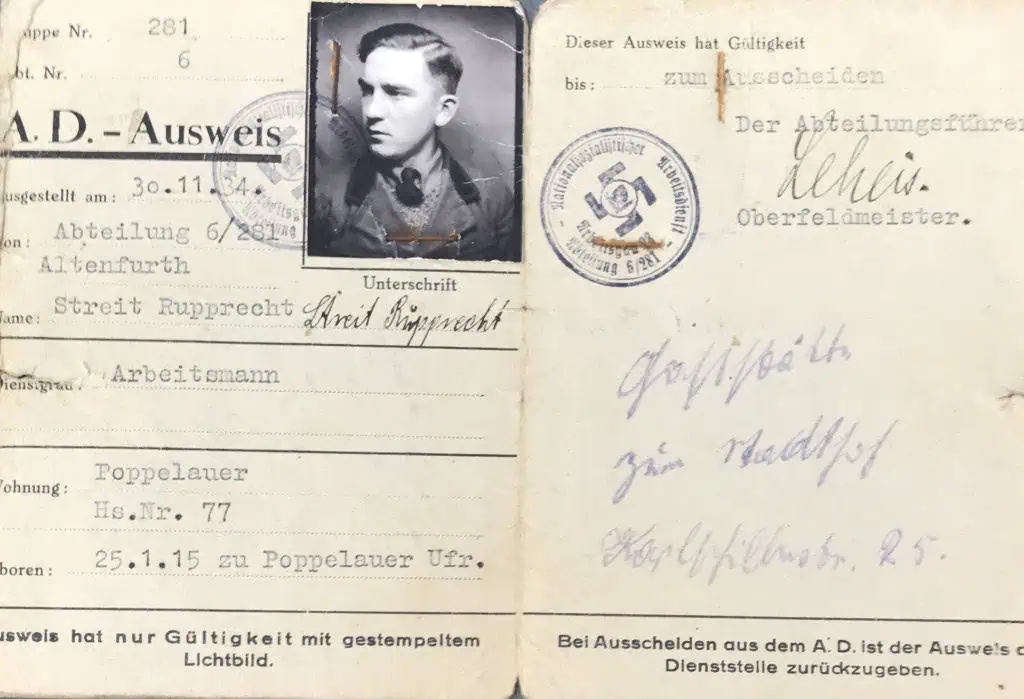 ppe Nr. 281
bt. Nr. 6
A. D. - Ausweis
usgestellt am: 30.11.34.
on: Abteilung 6/281
Altenfurth
ame: Streit Rupprecht
Dienstgrad: Arbeitsmann
ohnung: Poppelauer
Hs.Nr. 77
boren: 25.1.15 zu Poppelauer Ufr.
usweis hat nur Gültigkeit mit gestempeltem
Lichtbild.
Unterschrift
Streit Rupprecht
Dieser Ausweis hat Gültigkeit
bis: zum Ausscheiden
Der Abteilungsführer
Oberfeldmeister.
Nationalsozialistischer Arbeitsdienst
Arbeitsgau 28
Abteilung 6/281
Gaststätte
zum Stadthof
25.
Bei Ausscheiden aus dem A.D. ist der Ausweis d
Dienststelle zurückzugeben.